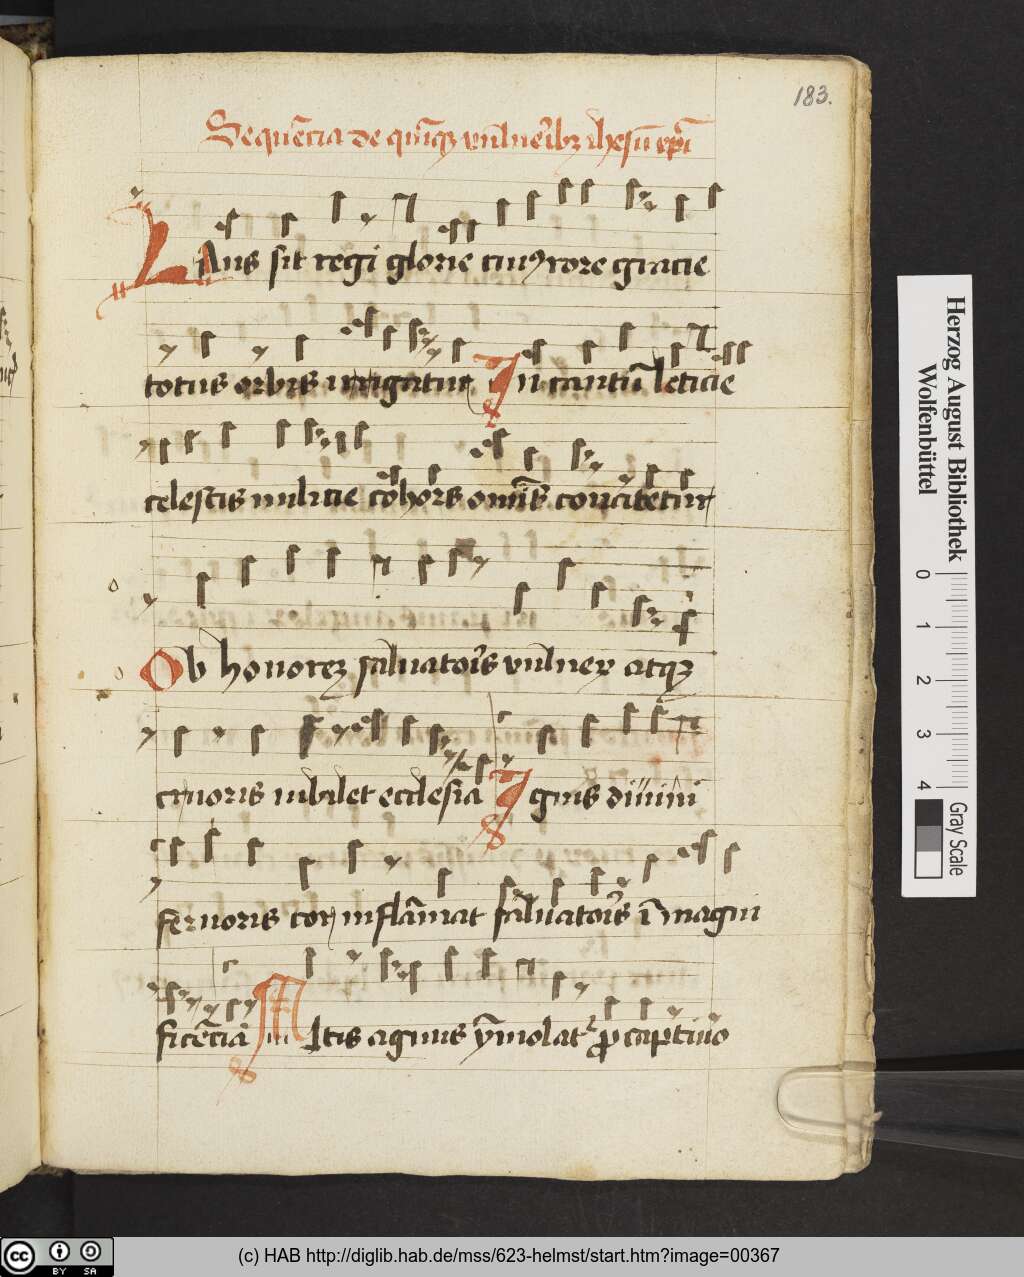 183.
Sequēcia de quīqꝫ vulneribꝫ ihesu xpi
LAus sit regi glorie cuiꝰ rore gracie
totus orbis irrigatur In cantū leticie
celestis milicie cohors omīs concitetur
Ob honoreꝫ saluatoris vulneꝝ atqꝫ
cruoris iubilet ecclesia Ignis diuini
feruoris cor inflāmat saluatoris ī magni
ficēcia Mitis agnus ymolatᷣ pro captiuo
Herzog August Bibliothek
Wolfenbüttel
0 1 2 3 4 Gray Scale
cc BY SA (c) HAB http://diglib.hab.de/mss/623-helmst/start.htm?image=00367